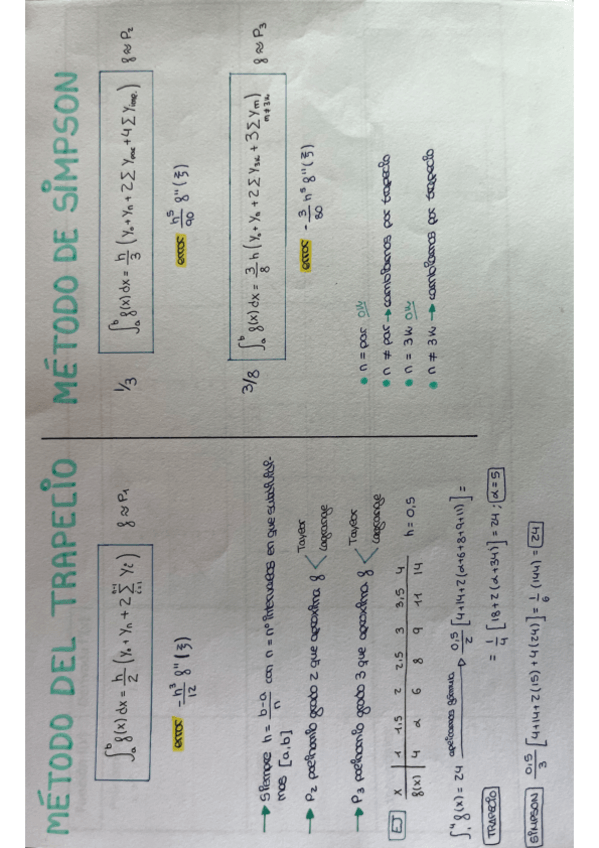 MÉTODO DEL TRAPECIO
∫ₐᵇ f(x)dx = h/2 (y₀ + yₙ + 2 Σ yᵢ) f ≈ P₁
error -h³/12 f''(ξ)
→ Siempre h = b-a/n con n = nº intervalos en que subdividi-
mos [a,b]
→ P₂ polinomio grado 2 que aproxima f < Taylor
Lagrange
→ P₃ polinomio grado 3 que aproxima f < Taylor
Lagrange
EJ
x 1 1,5 2 2,5 3 3,5 4 h = 0,5
f(x) 4 α 6 8 9 11 14
∫₁⁴ f(x) = 24 aplicamos fórmula → 0,5/2 [4+14+2(α+6+8+9+11)] =
TRAPECIO = 1/4 [18+2(α+34)] = 24; α=5
SIMPSON 0,5/3 [4+14+2(15)+4(24)] = 1/6 (144) = 24
MÉTODO DE SIMPSON
1/3 ∫ₐᵇ f(x)dx = h/3 (y₀ + yₙ + 2 Σ ypar + 4 Σ yimp.) f ≈ P₂
error h⁵/90 f''(ξ)
3/8 ∫ₐᵇ f(x)dx = 3/8 h (y₀ + yₙ + 2 Σ y₃ₖ + 3 Σ yₘ) f ≈ P₃
m≠3k
error -3/80 h⁵ f''(ξ)
• n = par OK
• n ≠ par → cambiamos por trapecio
• n = 3k OK
• n ≠ 3k → cambiamos por trapecio